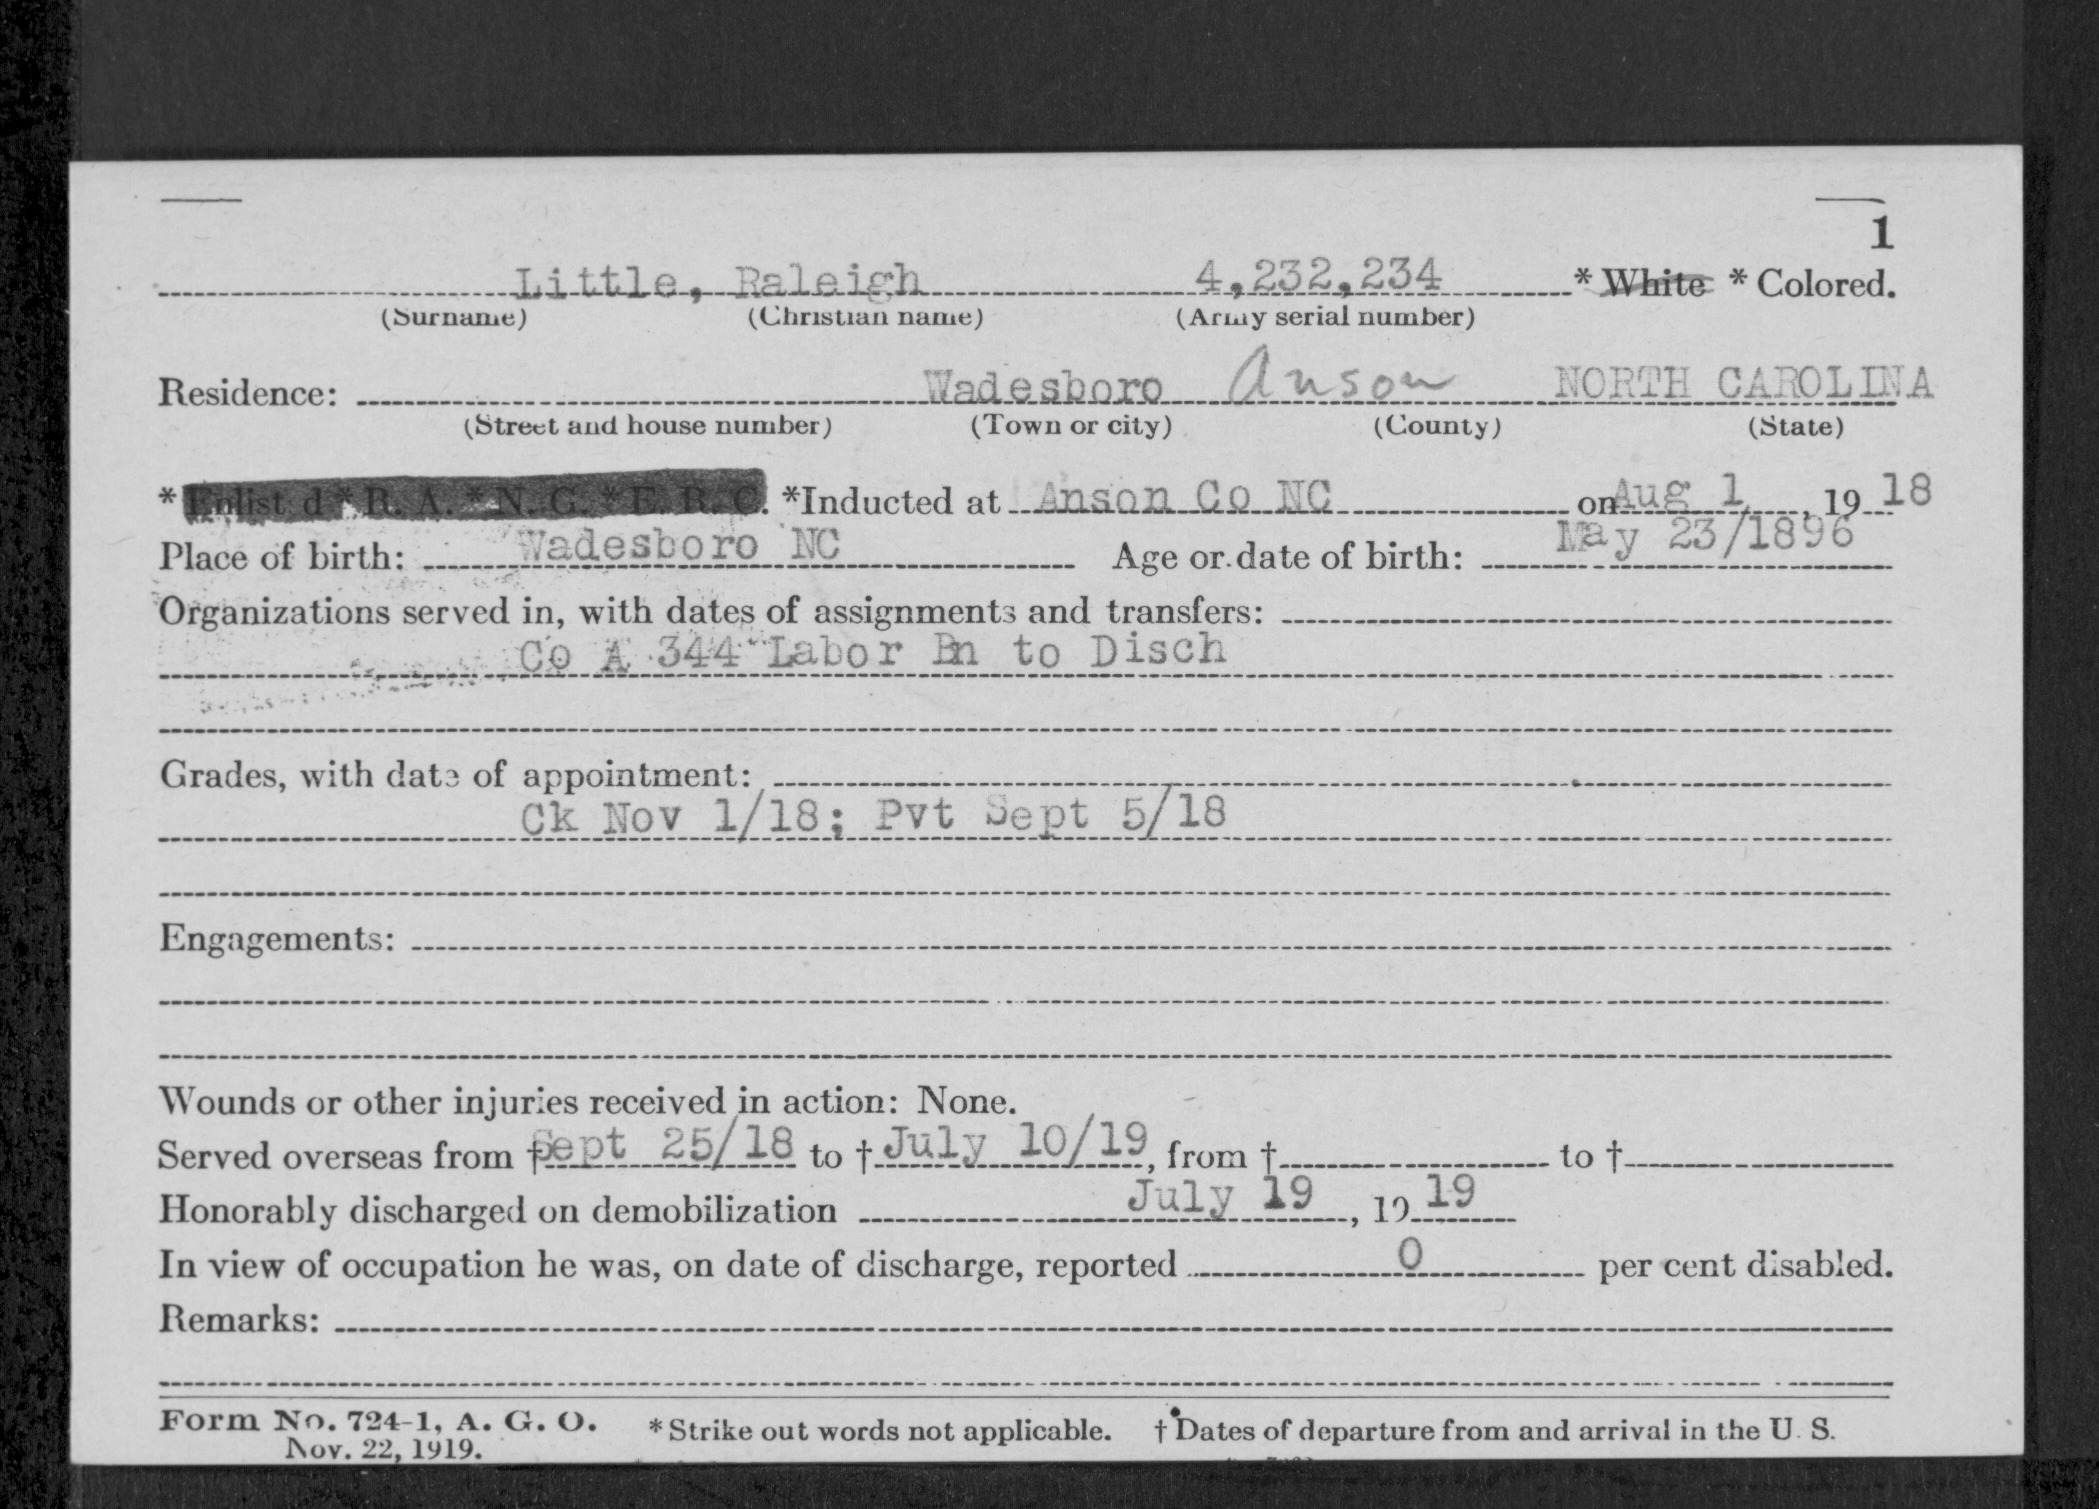 1
Little, Raleigh 4,232,234 * White * Colored.
(Surname) (Christian name) (Army serial number)
Residence: Wadesboro Anson NORTH CAROLINA
(Street and house number) (Town or city) (County) (State)
* Enlisted * R. A. * N. G. * E. R. C. *Inducted at Anson Co NC on Aug 1, 1918
Place of birth: Wadesboro NC Age or date of birth: May 23/1896
Organizations served in, with dates of assignments and transfers:
Co A 344 Labor Bn to Disch
Grades, with date of appointment:
Ck Nov 1/18; Pvt Sept 5/18
Engagements:
Wounds or other injuries received in action: None.
Served overseas from † Sept 25/18 to † July 10/19, from † to †
Honorably discharged on demobilization July 19, 1919
In view of occupation he was, on date of discharge, reported 0 per cent disabled.
Remarks:
Form No. 724-1, A. G. O. * Strike out words not applicable. † Dates of departure from and arrival in the U. S.
Nov. 22, 1919.